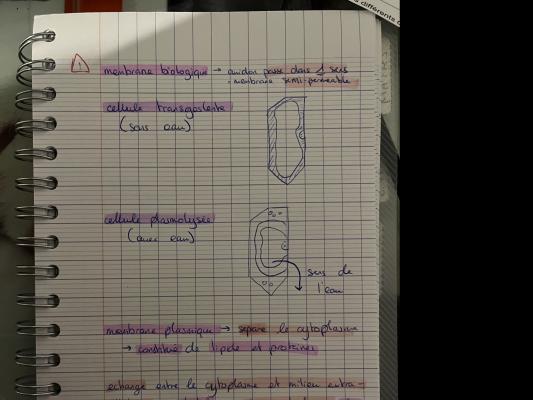 s différents
! membrane biologique → amidon passe dans 1 sens
= membrane semi-perméable
cellule
(sans eau)
cellule plasmolysée
(avec eau)
sens de
l'eau
membrane plasmique → sépare le cytoplasme
→ constitué de lipide et protéines
échange entre le cytoplasme et milieu extra-